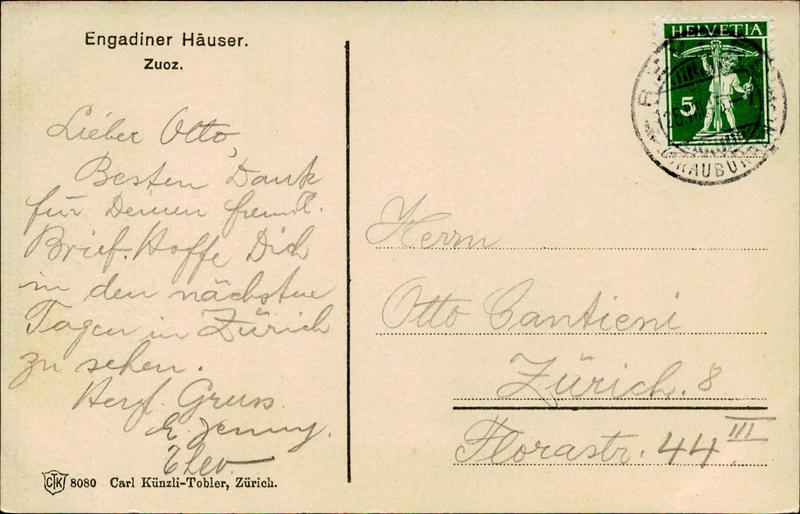 Engadiner Häuser.
Zuoz.
Lieber Otto,
Besten Dank
für Deinen freundl.
Brief. Hoffe Dich
in den nächsten
Tagen in Zürich
zu sehen.
Herzl. Gruss
E. Jenny.
HELVETIA
5
GRAUBÜNDEN
Herrn
Otto Cantieni
Zürich. 8
Florastr. 44 III
CTK 8080 Carl Künzli-Tobler, Zürich.